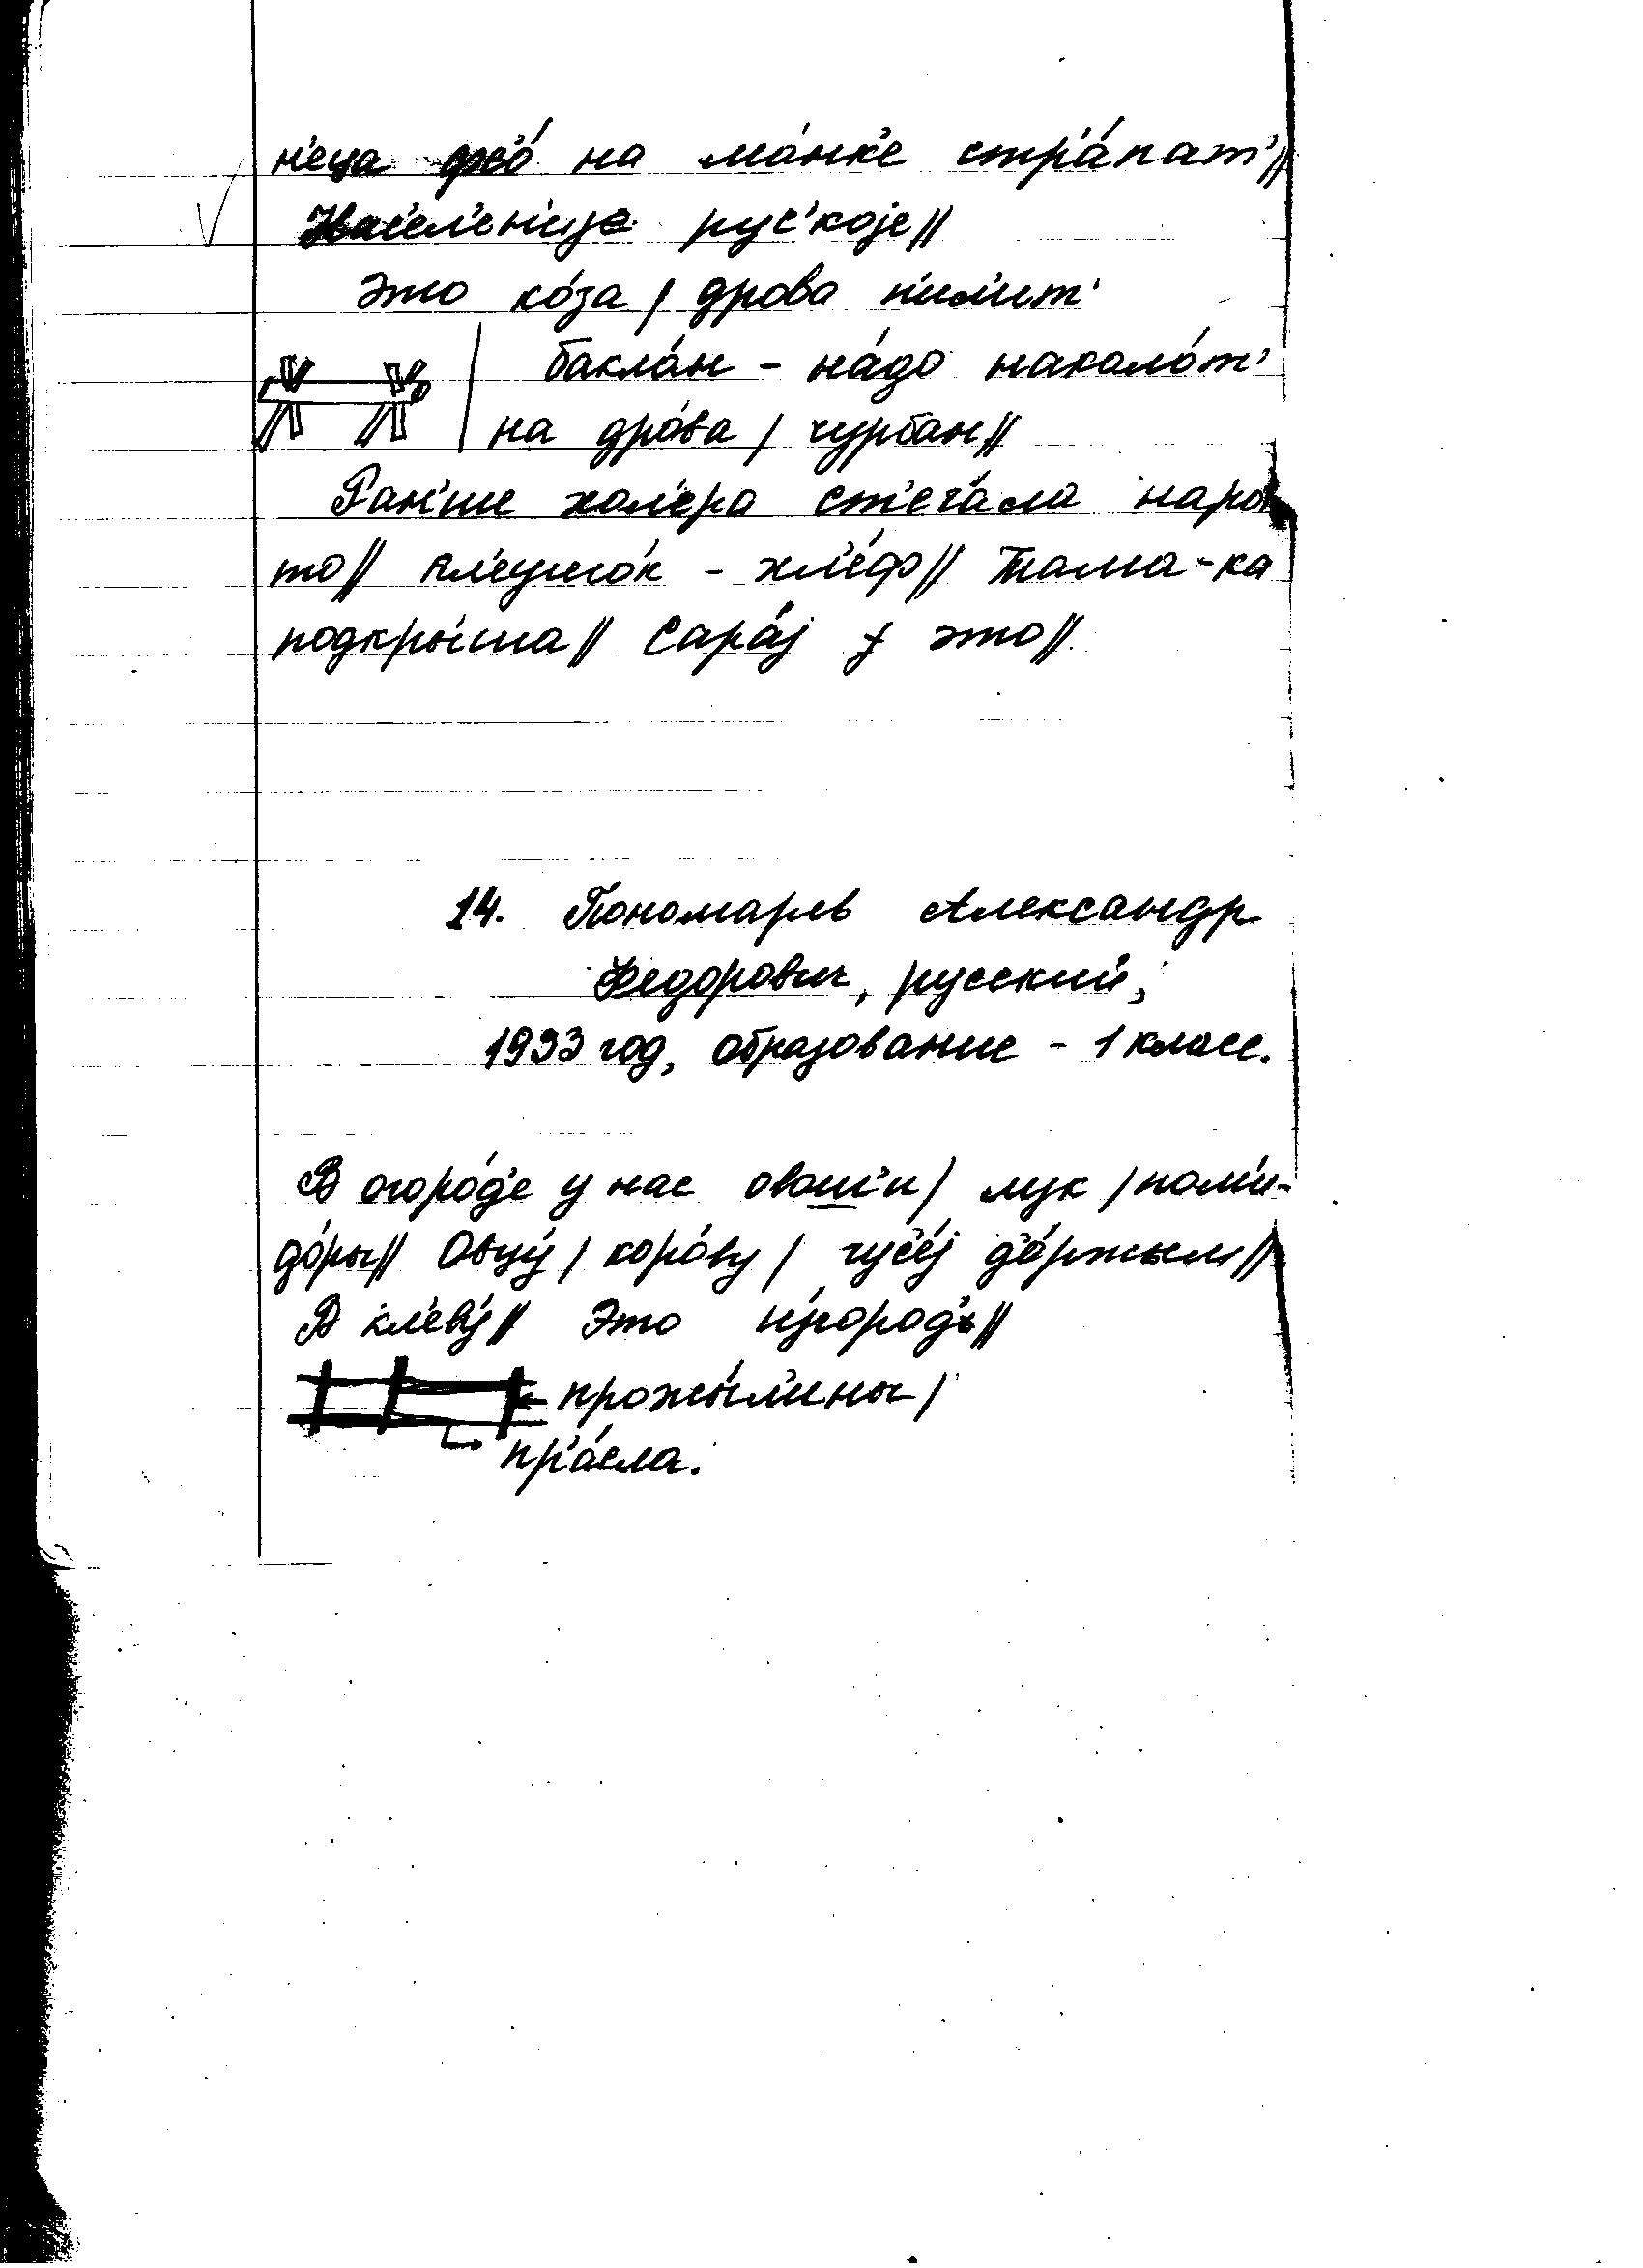 н'еца фс'о́ на ма́нк'е стр'а́пат'//
Нас'ел'ен'ијэ рус'које//
Это ко́за / дрова п'ил'ит'
бакла́н - на́до накало́т'
на дро́ва / чурбан//
Ран'ше хол'ера ст'ега́ла наро́т
то// хл'ефф//  Тама-ка
подкры́ша// Сара́ј у это//
14. Пономарев Александр
Федорович, русский,
1933 год, образование - 1 класс.
В огоро́д'е у нас овош'и / лук / пом'и-
до́ры// Овцу́ / коро́ву / гус'е́ј д'е́ржым//
В хл'еву́// Это и́згород'ь//
прожы́л'ины /
пр'а́сла.